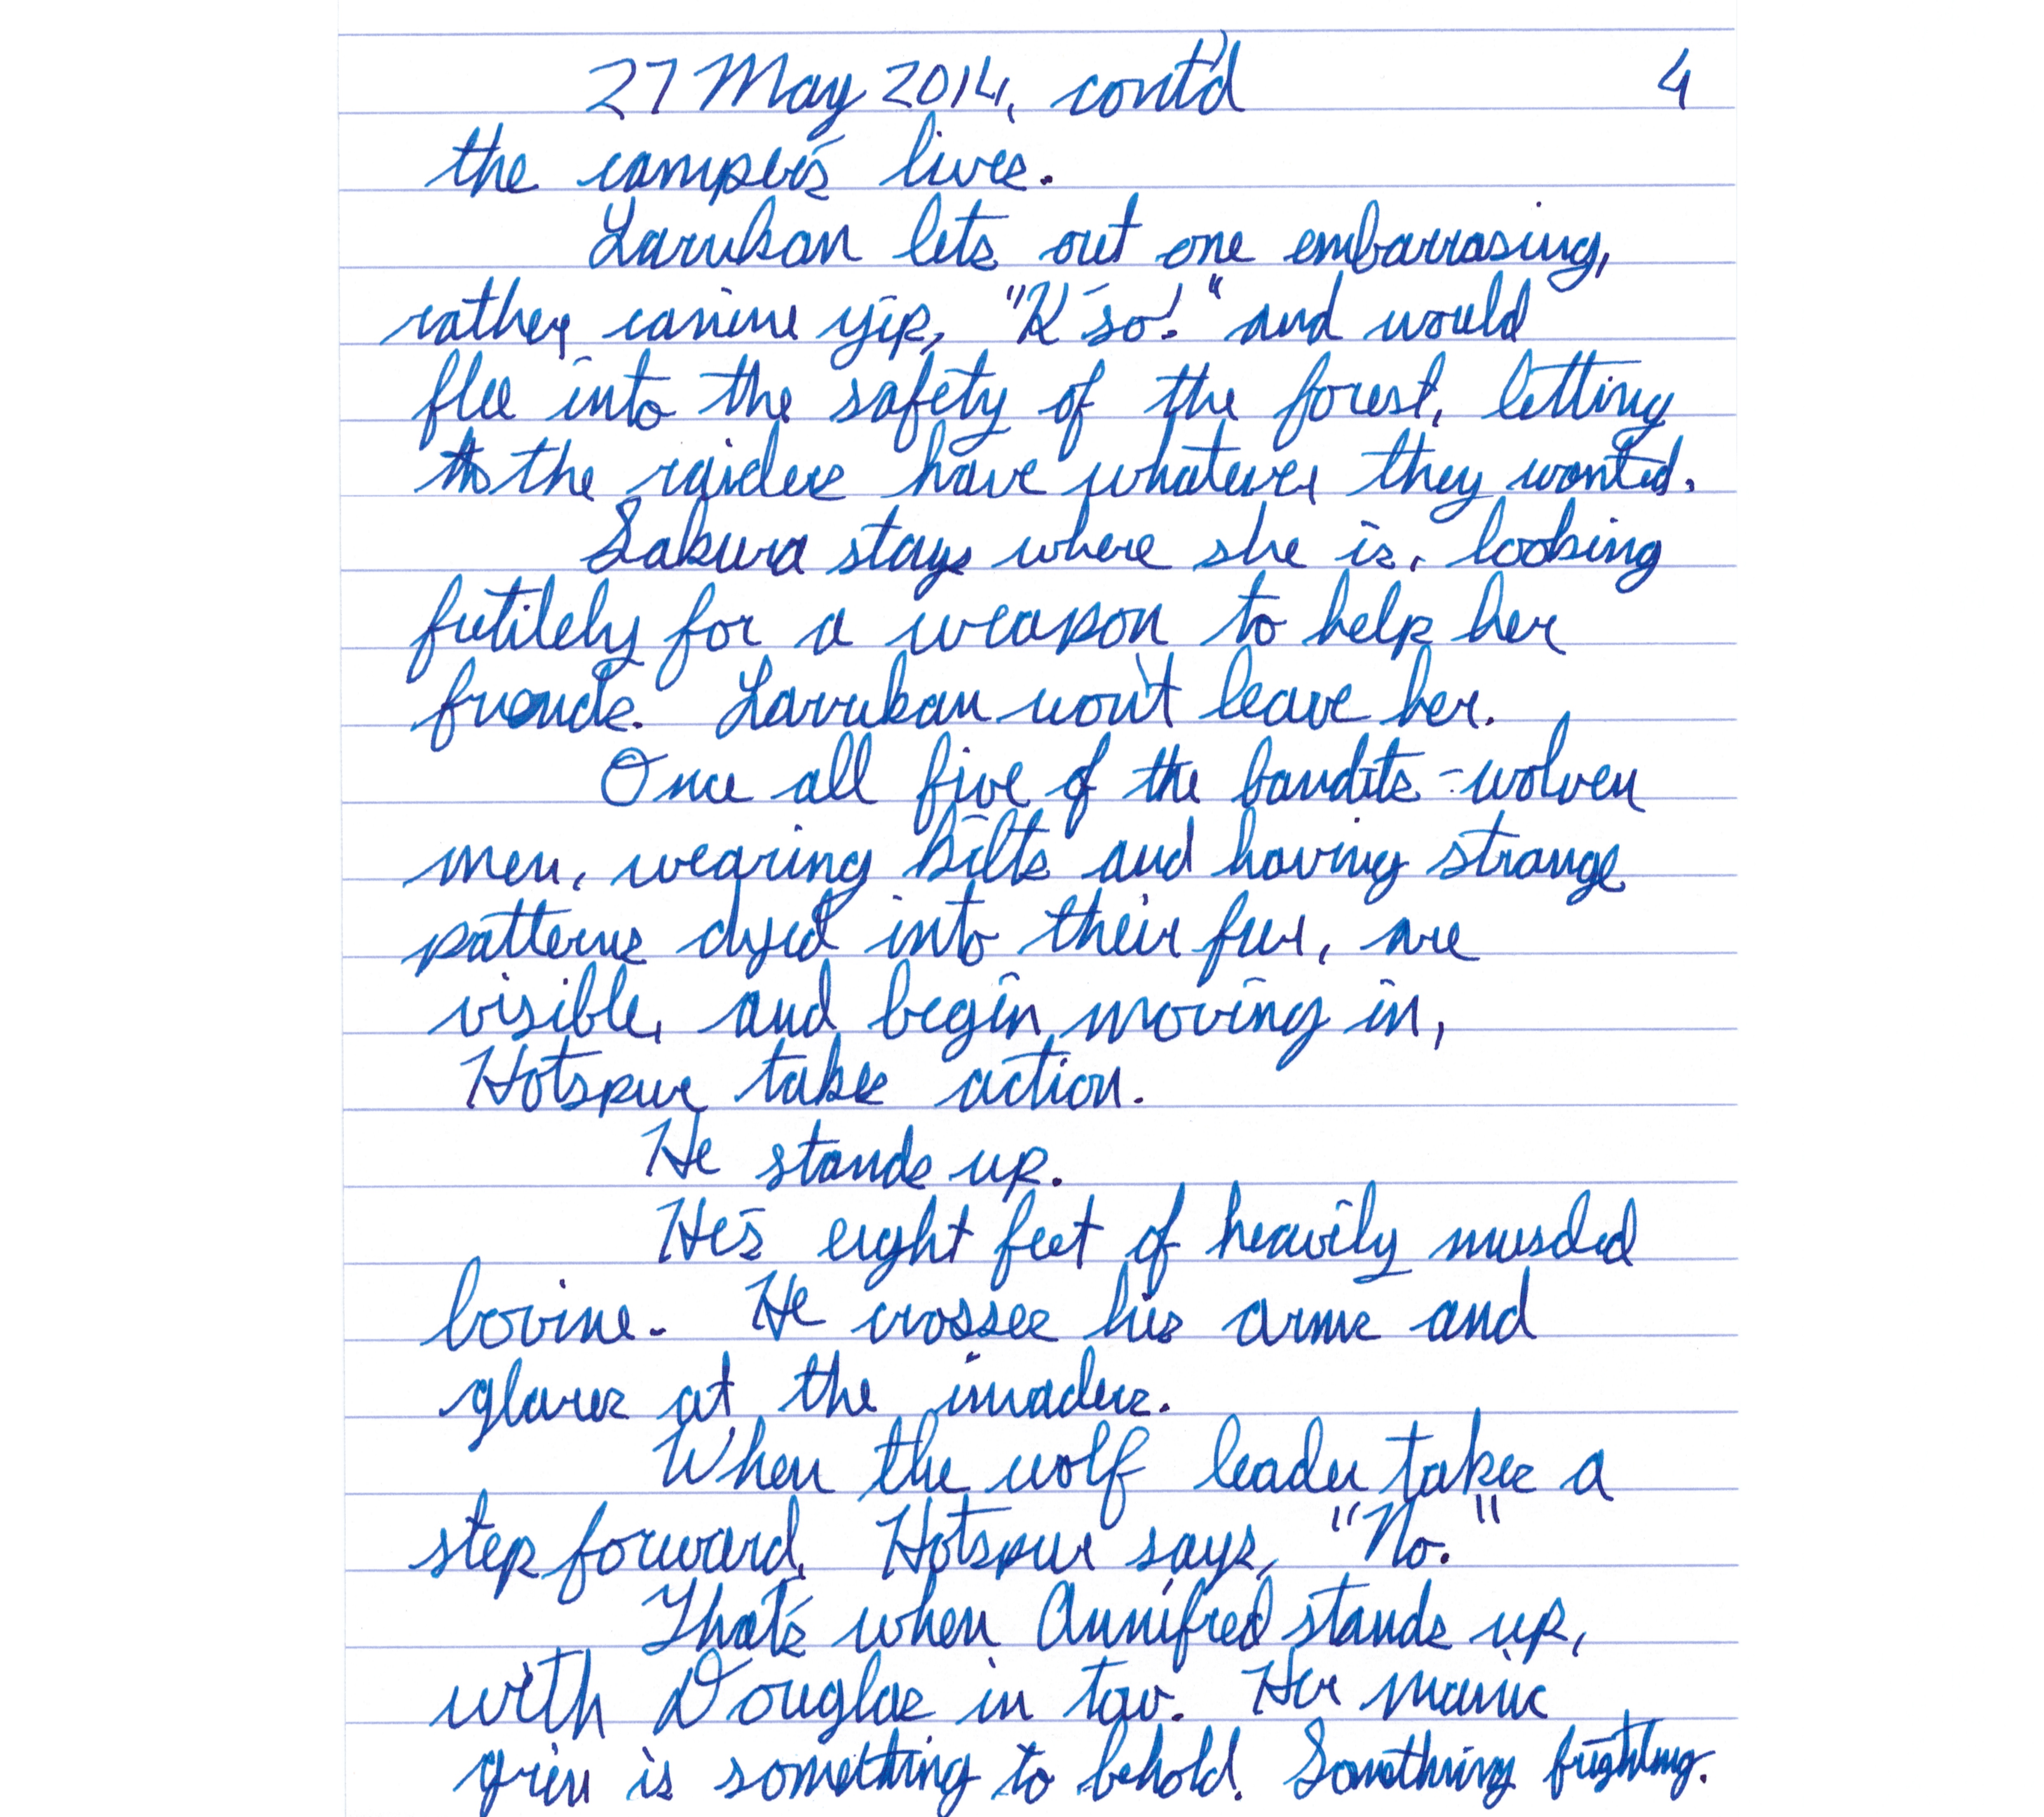 27 May 2014, cont'd 4
the camper's lives.
Larukan lets out one embarrasing,
rather canine yip, "K'so!" and would
flee into the safety of the forest, letting
the raiders have whatever they wanted.
Sakura stays where she is, looking
futilely for a weapon to help her
friends. Larukan won't leave her.
Once all five of the bandits - wolven
men, wearing kilts and having strange
patterns dyed into their fur, are
visible, and begin moving in,
Hotspur takes action.
He stands up.
He's eight feet of heavily muscled
bovine. He crosses his arms and
glares at the invaders.
When the wolf leader takes a
step forward, Hotspur says, "No."
That's when Annifred stands up,
with Douglas in tow. Her manic
grin is something to behold. Something